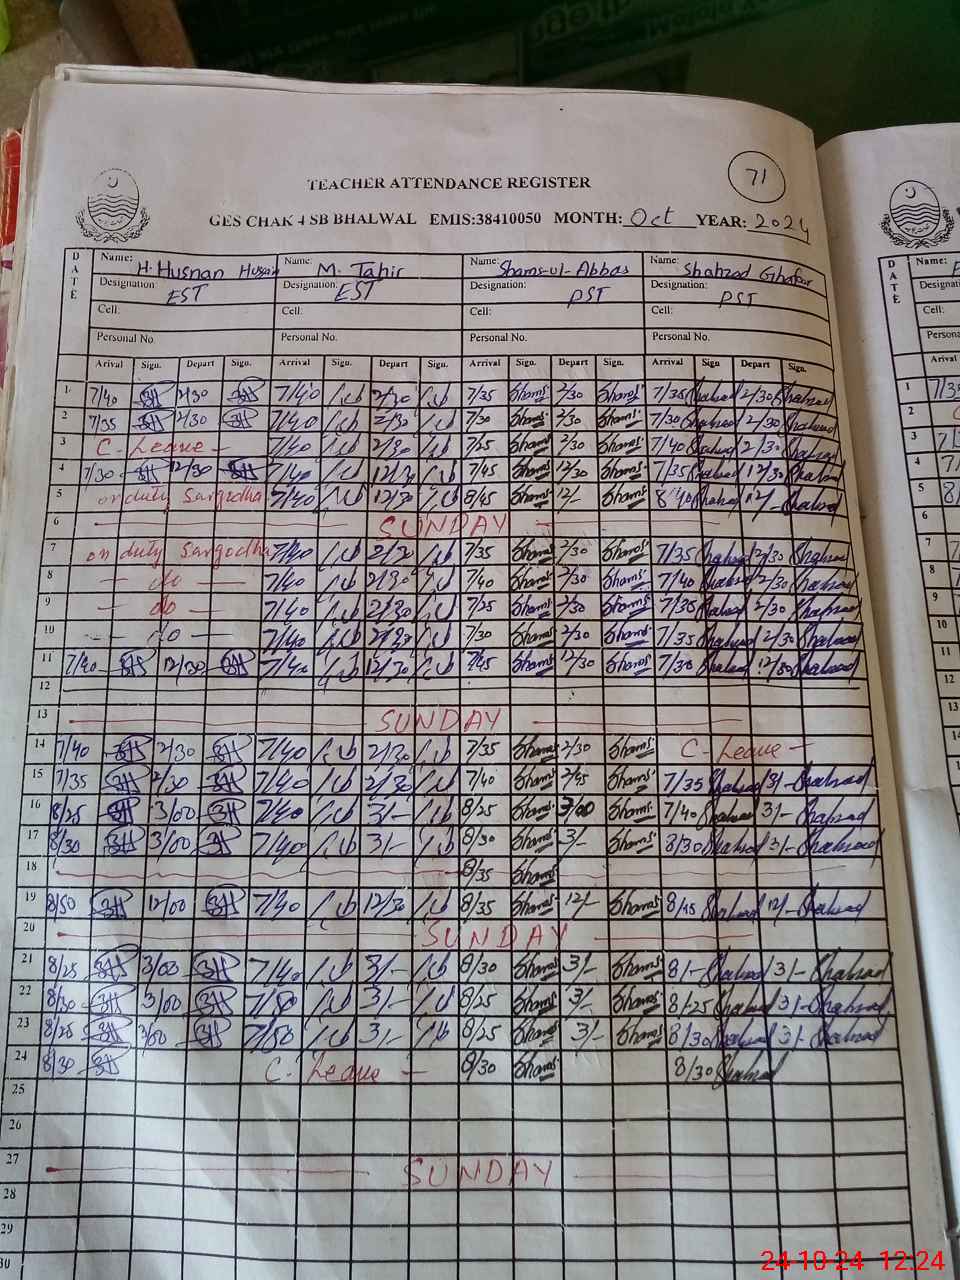 71
TEACHER ATTENDANCE REGISTER
GES CHAK 4 SB BHALWAL EMIS:38410050 MONTH: Oct YEAR: 2024
DATE
Name: H. Husnan Hussain Name: M. Tahir Name: Shams-ul-Abbas Name: Shahzad Ghafoor
Designation: EST Designation: EST Designation: PST Designation: PST
Cell: Cell: Cell: Cell:
Personal No. Personal No. Personal No. Personal No.
Arrival Sign. Depart Sign. Arrival Sign. Depart Sign. Arrival Sign. Depart Sign. Arrival Sign Depart Sign.
1 7/40 2/30 7/40 2/30 7/35 Shams 2/30 Shams 7/35 Shahzad 2/30 Shahzad
2 7/35 2/30 7/40 2/30 7/30 Shams 2/30 Shams 7/30 Shahzad 2/30 Shahzad
3 C. Leave - 7/40 2/30 7/25 Shams 2/30 Shams 7/40 Shahzad 2/30 Shahzad
4 7/30 12/30 7/40 12/30 7/45 Shams 12/30 Shams 7/35 Shahzad 12/30 Shahzad
5 on duty Sargodha 7/40 12/30 8/45 Shams 12/- Shams 8/40 Shahzad 12/- Shahzad
6 SUNDAY
7 on duty Sargodha 7/40 2/30 7/35 Shams 2/30 Shams 7/35 Shahzad 2/30 Shahzad
8 - do - 7/40 2/30 7/40 Shams 2/30 Shams 7/40 Shahzad 2/30 Shahzad
9 - do - 7/40 2/30 7/25 Shams 2/30 Shams 7/35 Shahzad 2/30 Shahzad
10 - do - 7/40 2/30 7/30 Shams 2/30 Shams 7/35 Shahzad 2/30 Shahzad
11 7/40 12/30 7/40 12/30 7/45 Shams 12/30 Shams 7/30 Shahzad 12/30 Shahzad
12
13 SUNDAY
14 7/40 2/30 7/40 2/30 7/35 Shams 2/30 Shams C. Leave -
15 7/35 2/30 7/40 2/30 7/40 Shams 2/45 Shams 7/35 Shahzad 3/- Shahzad
16 8/25 3/00 7/40 3/- 8/25 Shams 3/00 Shams 7/40 Shahzad 3/- Shahzad
17 8/30 3/00 7/40 3/- 8/30 Shams 3/- Shams 8/30 Shahzad 3/- Shahzad
18 8/35 Shams
19 8/50 12/00 7/40 12/30 8/35 Shams 12/- Shams 8/45 Shahzad 12/- Shahzad
20 SUNDAY
21 8/25 3/00 7/40 3/- 8/30 Shams 3/- Shams 8/- Shahzad 3/- Shahzad
22 8/30 3/00 7/50 3/- 8/25 Shams 3/- Shams 8/25 Shahzad 3/- Shahzad
23 8/25 3/00 7/50 3/- 8/25 Shams 3/- Shams 8/30 Shahzad 3/- Shahzad
24 8/30 C. Leave - 8/30 Shams 8/30 Shahzad
25
26
27 SUNDAY
28
29
30
DATE
Name:
Designation
Cell:
Persona
Arrival
1 7/35
2
3
4
5
6
7
8
9
10
11
12
13
24-10-24 12:24